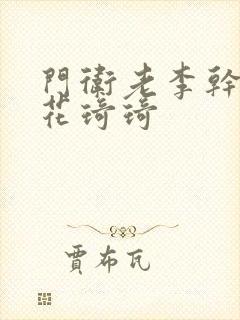 門衛老李幹
花琦琦
賈布瓦